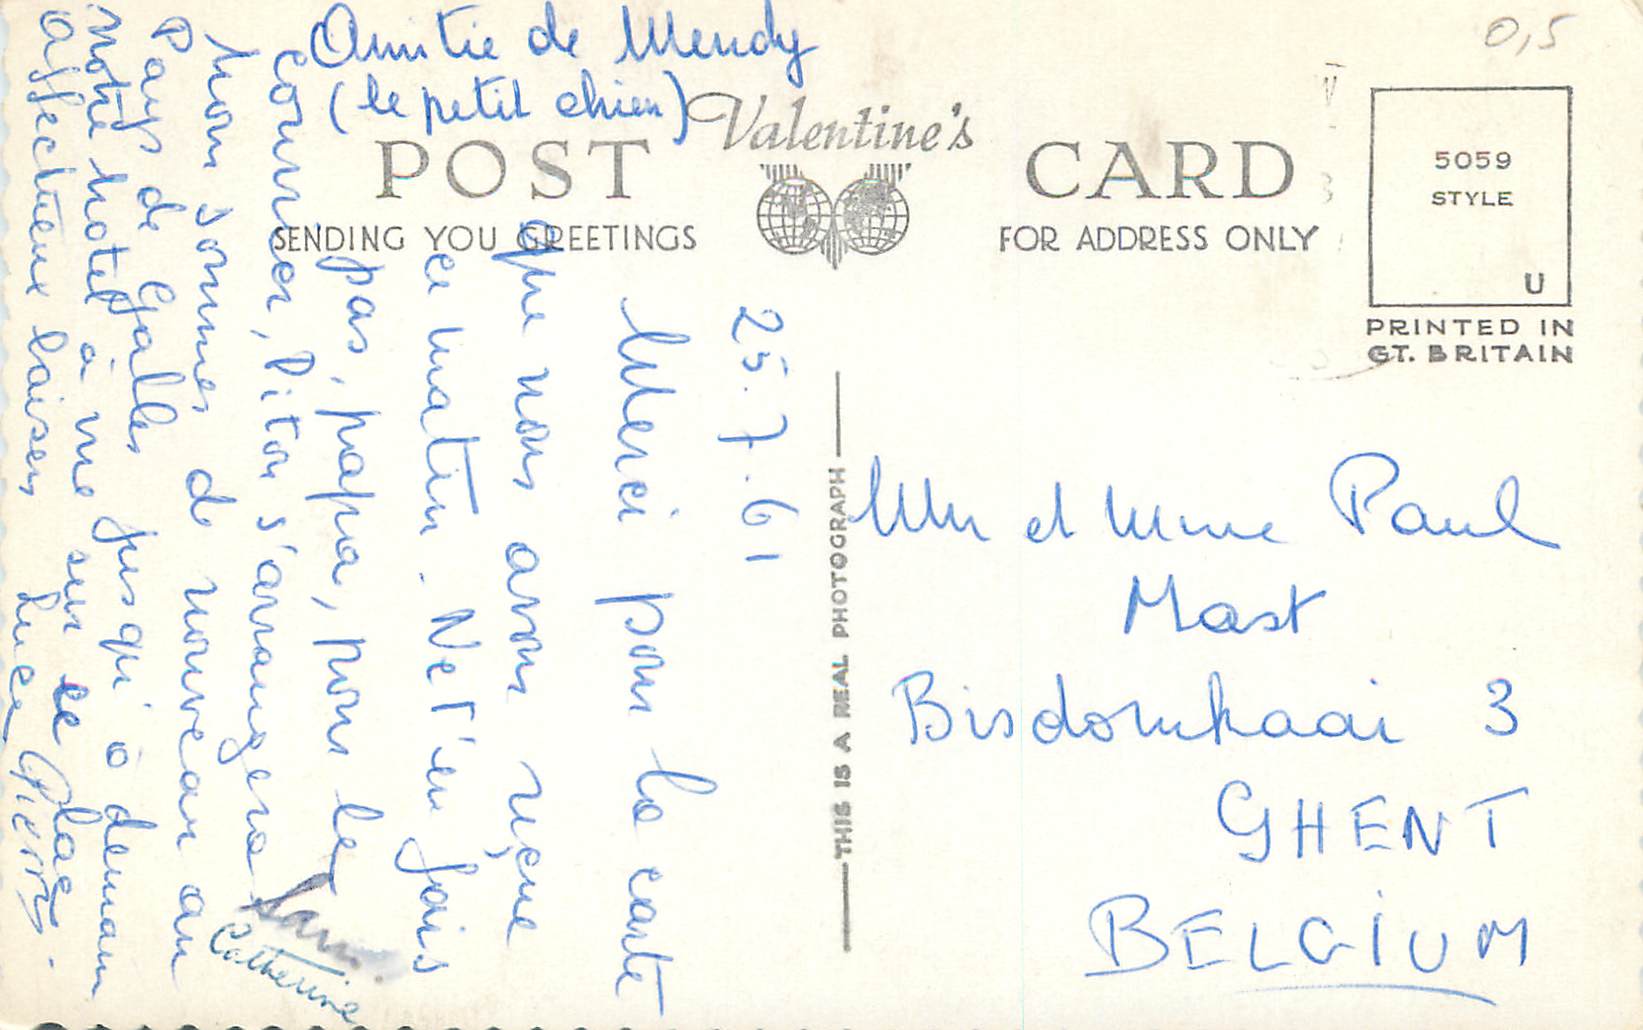 0,5
Amitié de Wendy
(le petit chien)
Valentine's
POST CARD
SENDING YOU GREETINGS
FOR ADDRESS ONLY
5059
STYLE
U
PRINTED IN
GT. BRITAIN
THIS IS A REAL PHOTOGRAPH
25.7.61
Merci pour la carte
que nous avons reçue
ce matin. Ne t'en fais
pas, papa, pour le
courrier, Piton s'arrangera
Nous sommes de nouveau au
Pays de Galles jusqu'à demain
Notre hotel à vue sur ce
Affectueux baisers Luce Pierre.
Catherine
Mr et Mme Paul
Mast
Bisdomkaai 3
GHENT
BELGIUM